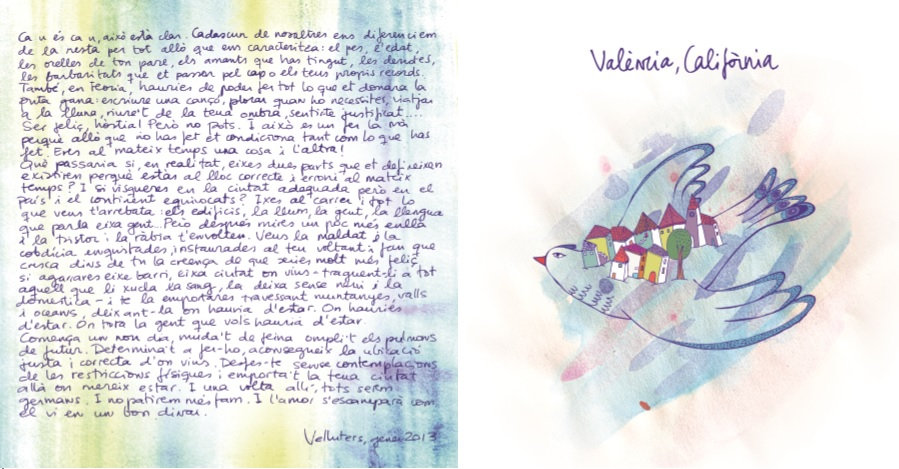 Ca u és ca u, això està clar. Cadascun de nosaltres ens diferenciem
de la resta per tot allò que ens caracteritza: el pes, l'edat,
les orelles de ton pare, els amants que has tingut, les derrotes,
les barbaritats que et passen pel cap o els teus propis records.
També, en teoria, hauries de poder fer tot lo que et donara la
puta gana: escriure una cançó, plorar quan ho necessites, viatjar
a la lluna, riure't de la teua ombra, sentirte justificat....
Ser feliç, hòstia! Però no pots. I això és un fer la mà
perquè allò que no has fet et condiciona tant com lo que has
fet. Eres al mateix temps una cosa i l'altra!
Què passaria si, en realitat, eixes dues parts que et defineixen
existiren perquè estàs al lloc correcte i erroni al mateix
temps? I si visqueres en la ciutat adequada però en el
país i el continent equivocats? Ixes al carrer i tot lo
que veus t'arrebata: els edificis, la llum, la gent, la llengua
que parla eixa gent. Però després mires un poc més enllà
i la tristor i la ràbia t'envolten. Veus la maldat i la
cobdícia enquistades, instaurades al teu voltant i fan que
cresca dins de tu la creença de que series molt més feliç
si agafares eixe barri, eixa ciutat on vius - traguent-li a tot
aquell que li xucla la sang, la deixa sense nervi i la
domestica - i te la emportares travessant muntanyes, valls
i oceans, deixant-la on hauria d'estar. On hauries
d'estar. On tota la gent que vols hauria d'estar.
Comença un nou dia, muda't de feina ompli't els pulmons
de futur. Determina't a fer-ho, aconsegueix la ubicació
justa i correcta d'on vius. Desfes-te sense contemplacions
de les restriccions físiques i emporta't la teua ciutat
allà on mereix estar. I una volta allí, tots serem
germans. I no patirem més fam. I l'amor s'escamparà com
el vi en un bon dinar.
Velluters, gener 2013
València, Califòrnia